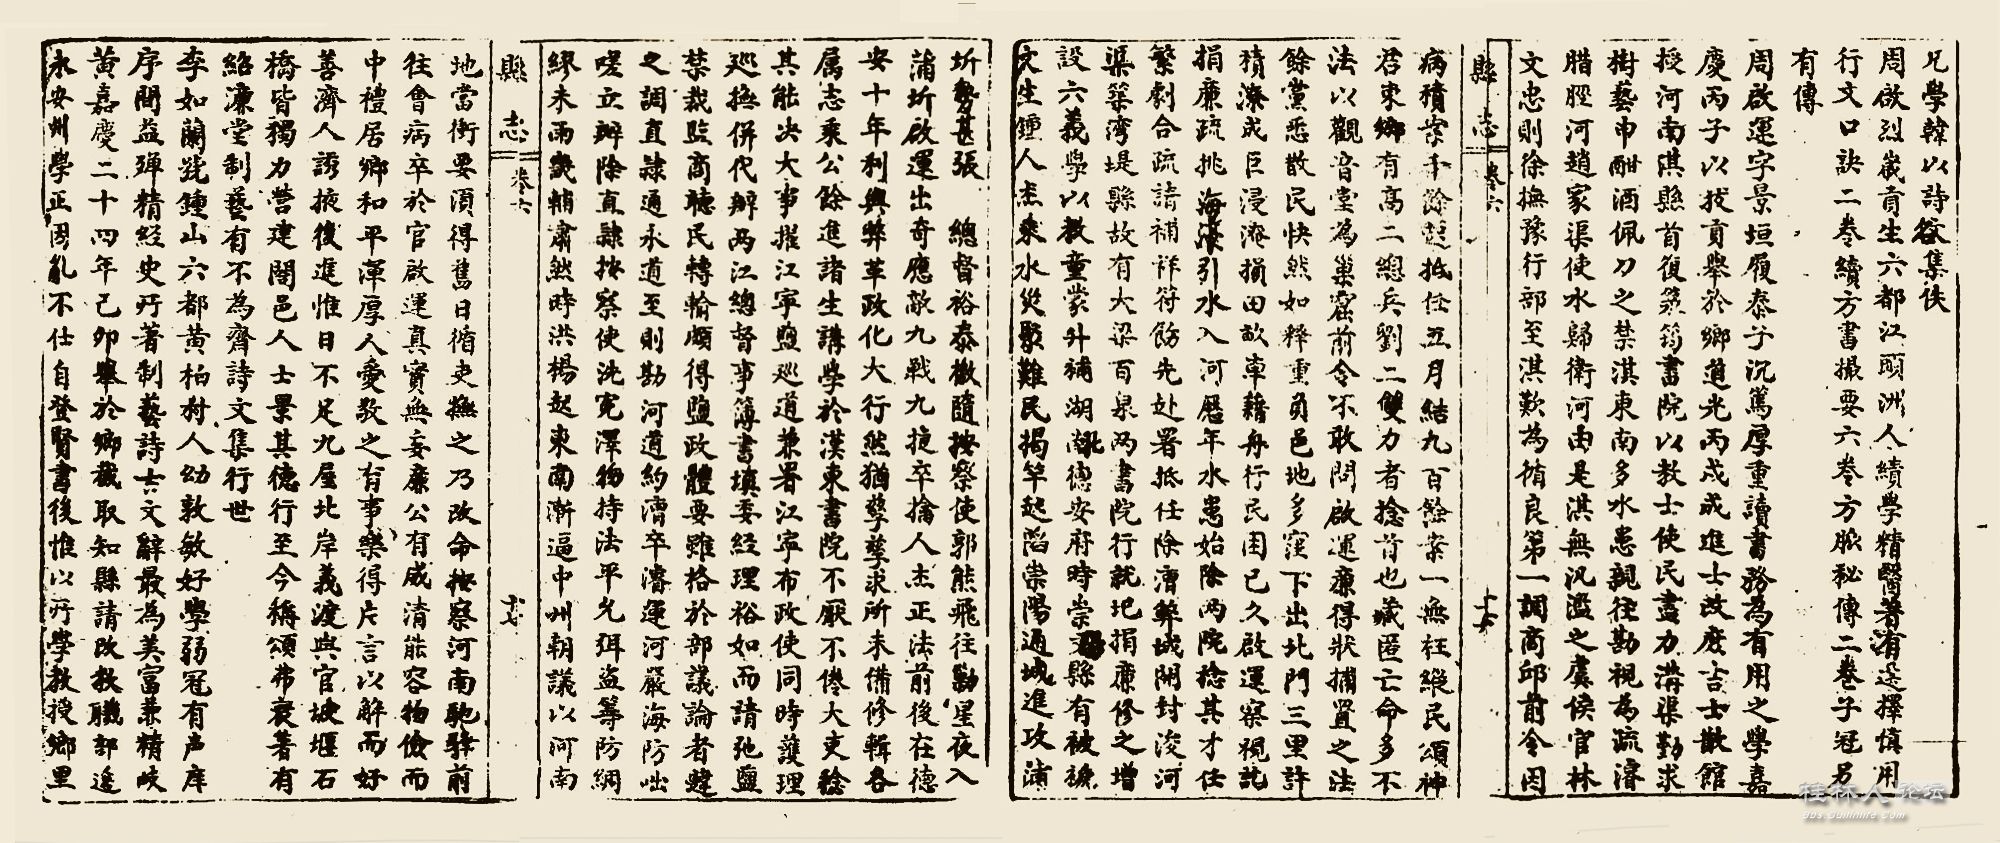 兄學韓以詩谷集佚
周啟烈歲貢生六都江頭洲人績學精醫著有選擇慎用
行文口訣二卷續方書撮要六卷方脈秘傳二卷子冠另
有傳
周啟運字景垣履泰子沉篤厚重讀書務為有用之學嘉
慶丙子以拔貢舉於鄉道光丙戌成進士改庶吉士散館
授河南淇縣首復綠筠書院以教士使民盡力溝渠勤求
樹藝申酣酒佩刀之禁淇東南多水患親往勘視為疏濬
腊脛河趙家渠使水歸衛河由是淇無汎濫之虞侯官林
文忠則徐撫豫行部至淇歎為循良第一調商邱前令因
縣志 卷六
病積案千餘起抵任五月結九百餘案一無枉縱民頌神
君東鄉有高二總兵劉二雙力者捻首也藏匿亡命多不
法以觀音堂為巢窟前令不敢問啟運廉得狀捕置之法
餘黨悉散民快然如釋重負邑地多窪下出北門三里許
積潦成巨浸淹損田畝車藉舟行民困已久啟運察視訖
捐廉疏挑海溝引水入河歷年水患始除兩院捻其才任
繁劇合疏請補祥符飭先赴署抵任除漕弊城開封浚河
渠築灣堤縣故有大梁百泉兩書院行就圯捐廉修之增
設六義學以教童蒙升補湖北德安府時崇縣有被褫
文生鍾人杰乘水災聚難民揭竿起滔崇陽通城進攻蒲
圻勢甚張 總督裕泰檄隨按察使郭熊飛往勦星夜入
蒲圻啟運出奇應敵九戰九捷卒擒人杰正法前後在德
安十年利興弊革政化大行然猶孳孳求所未備修輯各
属志乘公餘進諸生講學於漢東書院不厭不倦大吏稔
其能決大事擢江寧鹽巡道兼署江寧布政使同時護理
巡撫併代辦兩江總督事簿書填委經理裕如而請弛鹽
禁裁監商聽民轉輸頗得鹽政體要雖格於部議論者韙
之調直隸通永道至則勘河道約漕卒濬運河嚴海防咄
嗟立辦除直隸按察使洗冤澤物持法平允弭盜籌防綢
繆未雨畿輔肅然時洪楊起東南漸逼中州朝議以河南
縣志 卷六
地當衝要須得舊日循吏撫之乃改命按察河南馳驛前
往會病卒於官啟運真實無妄廉公有威清能容物儉而
中禮居鄉和平渾厚人愛敬之有事樂得片言以解而好
善濟人誘掖後進惟日不足九屋北岸義渡與官坡堰石
橋皆獨力營建闔邑人士景其德行至今稱頌弗衰著有
紹濂堂制藝有不為齋詩文集行世
李如蘭號鍾山六都黃柏村人幼敦敏好學弱冠有声庠
序間益殫精經史所著制藝詩古文辭最為美富兼精岐
黃嘉慶二十四年己卯舉於鄉截取知縣請改教職部選
永安州學正因亂不仕自登賢書後惟以所學教授鄉里